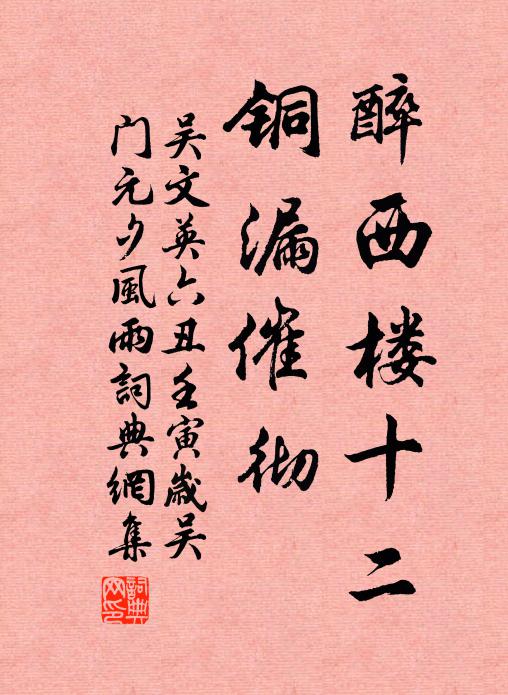 醉西楼十二
铜漏催彻
吴文英六丑壬寅歲吴
门元夕風雨詞典網集
詞典網印